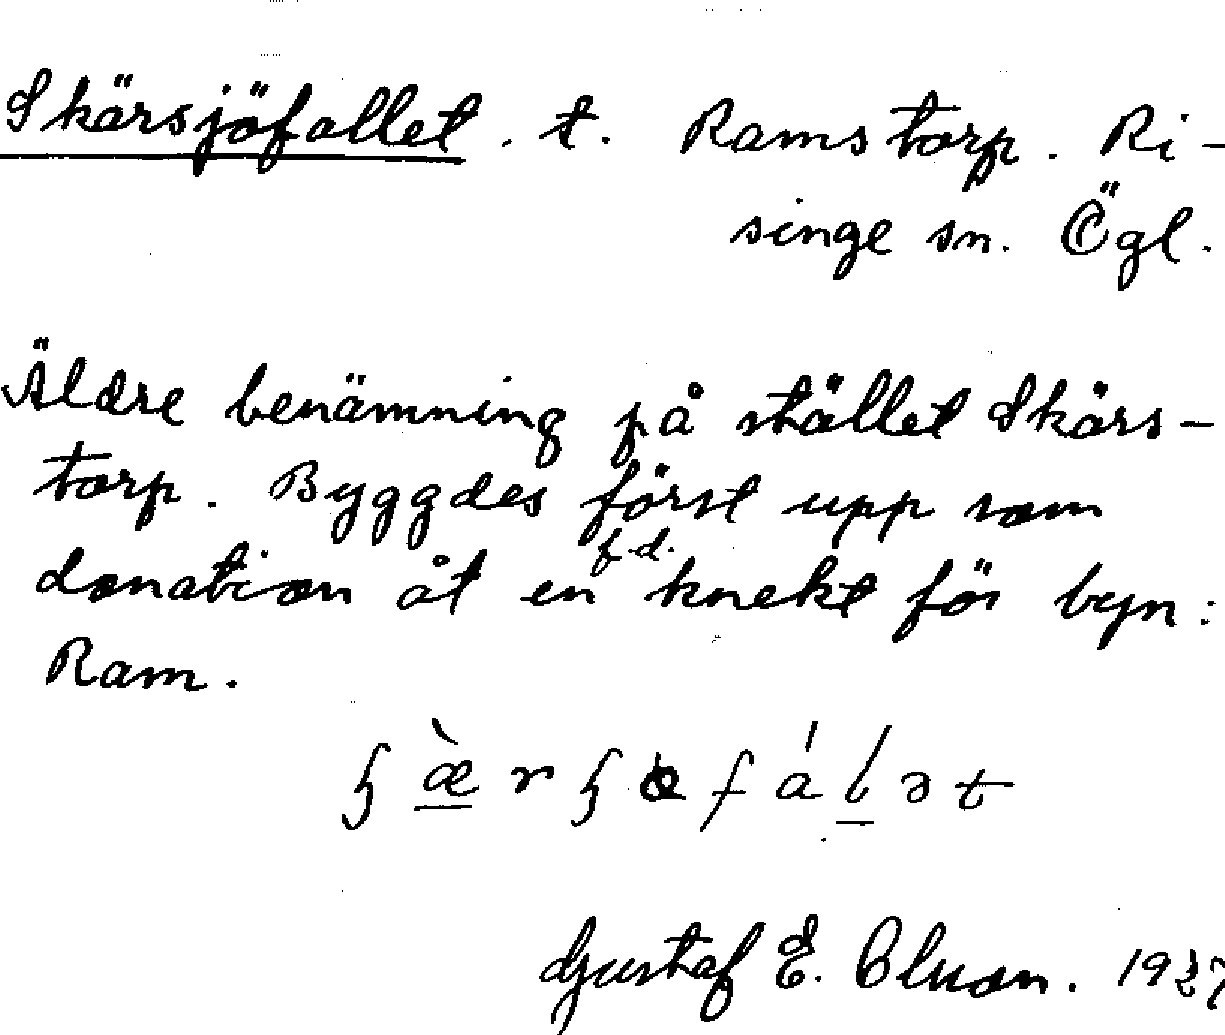 Skärsjöfallet. t. Ramstorp. Ri-
singe sn. Ögl.
Äldre benämning på stället Skärs-
torp. Byggdes först upp som
f.d.
donation åt en knekt för byn:
Ram.
Gustaf E. Olson. 1927